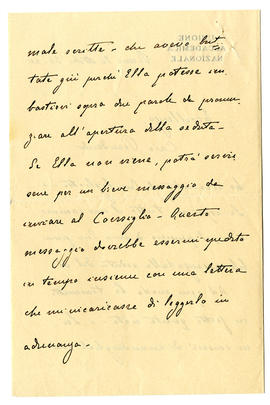 male scritte - che avevo but
tate giù perchè Ella potesse im
bastirvi sopra due parole da pronun
ziare all'apertura della seduta -
Se Ella non viene, potrà servir
sene per un breve messaggio da
inviare al Consiglio - Questo
messaggio dovrebbe essermi spedito
in tempo insieme con una lettera
che mi incaricasse di leggerlo in
adunanza -